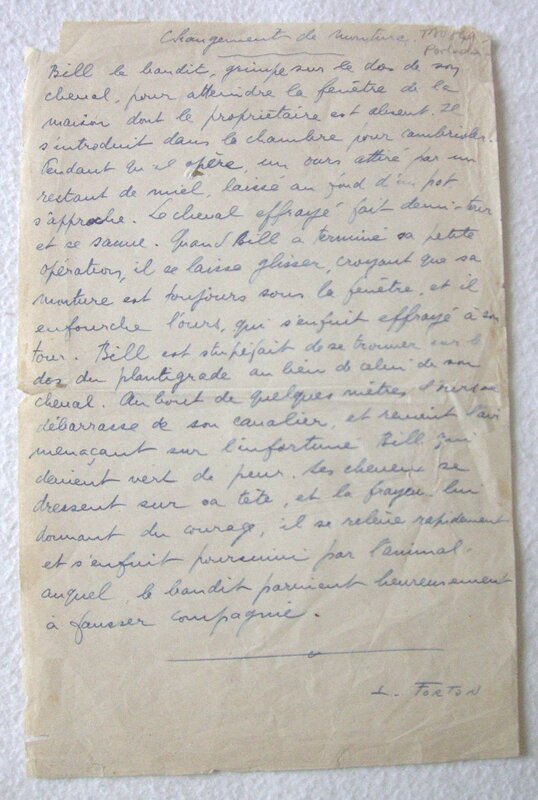 Changement de monture.
Bill le bandit, grimpe sur le dos de son
cheval, pour atteindre la fenêtre de la
maison dont le propriétaire est absent. Il
s'introduit dans la chambre pour cambrioler.
Pendant qu'il opère, un ours attiré par un
restant de miel, laissé au fond d'un pot
s'approche. Le cheval effrayé fait demi-tour
et se sauve. Quand Bill a terminé sa petite
opération, il se laisse glisser, croyant que sa
monture est toujours sous la fenêtre, et il
enfourche l'ours, qui s'enfuit effrayé à son
tour. Bill est stupéfait de se trouver sur le
dos du plantigrade au lieu de celui de son
cheval. Au bout de quelques mètres l'ours se
débarrasse de son cavalier, et revient l'air
menaçant sur l'infortuné Bill qui
devient vert de peur. Ses cheveux se
dressent sur sa tête, et la frayeur lui
donnant du courage, il se relève rapidement
et s'enfuit poursuivi par l'animal
auquel, le bandit parvient heureusement
à fausser compagnie.
L. FORTON